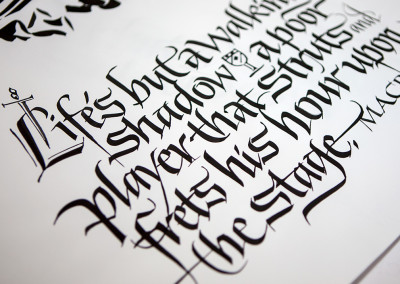 Life's but a walking
shadow, a poor
player that struts and
frets his hour upon
the stage.